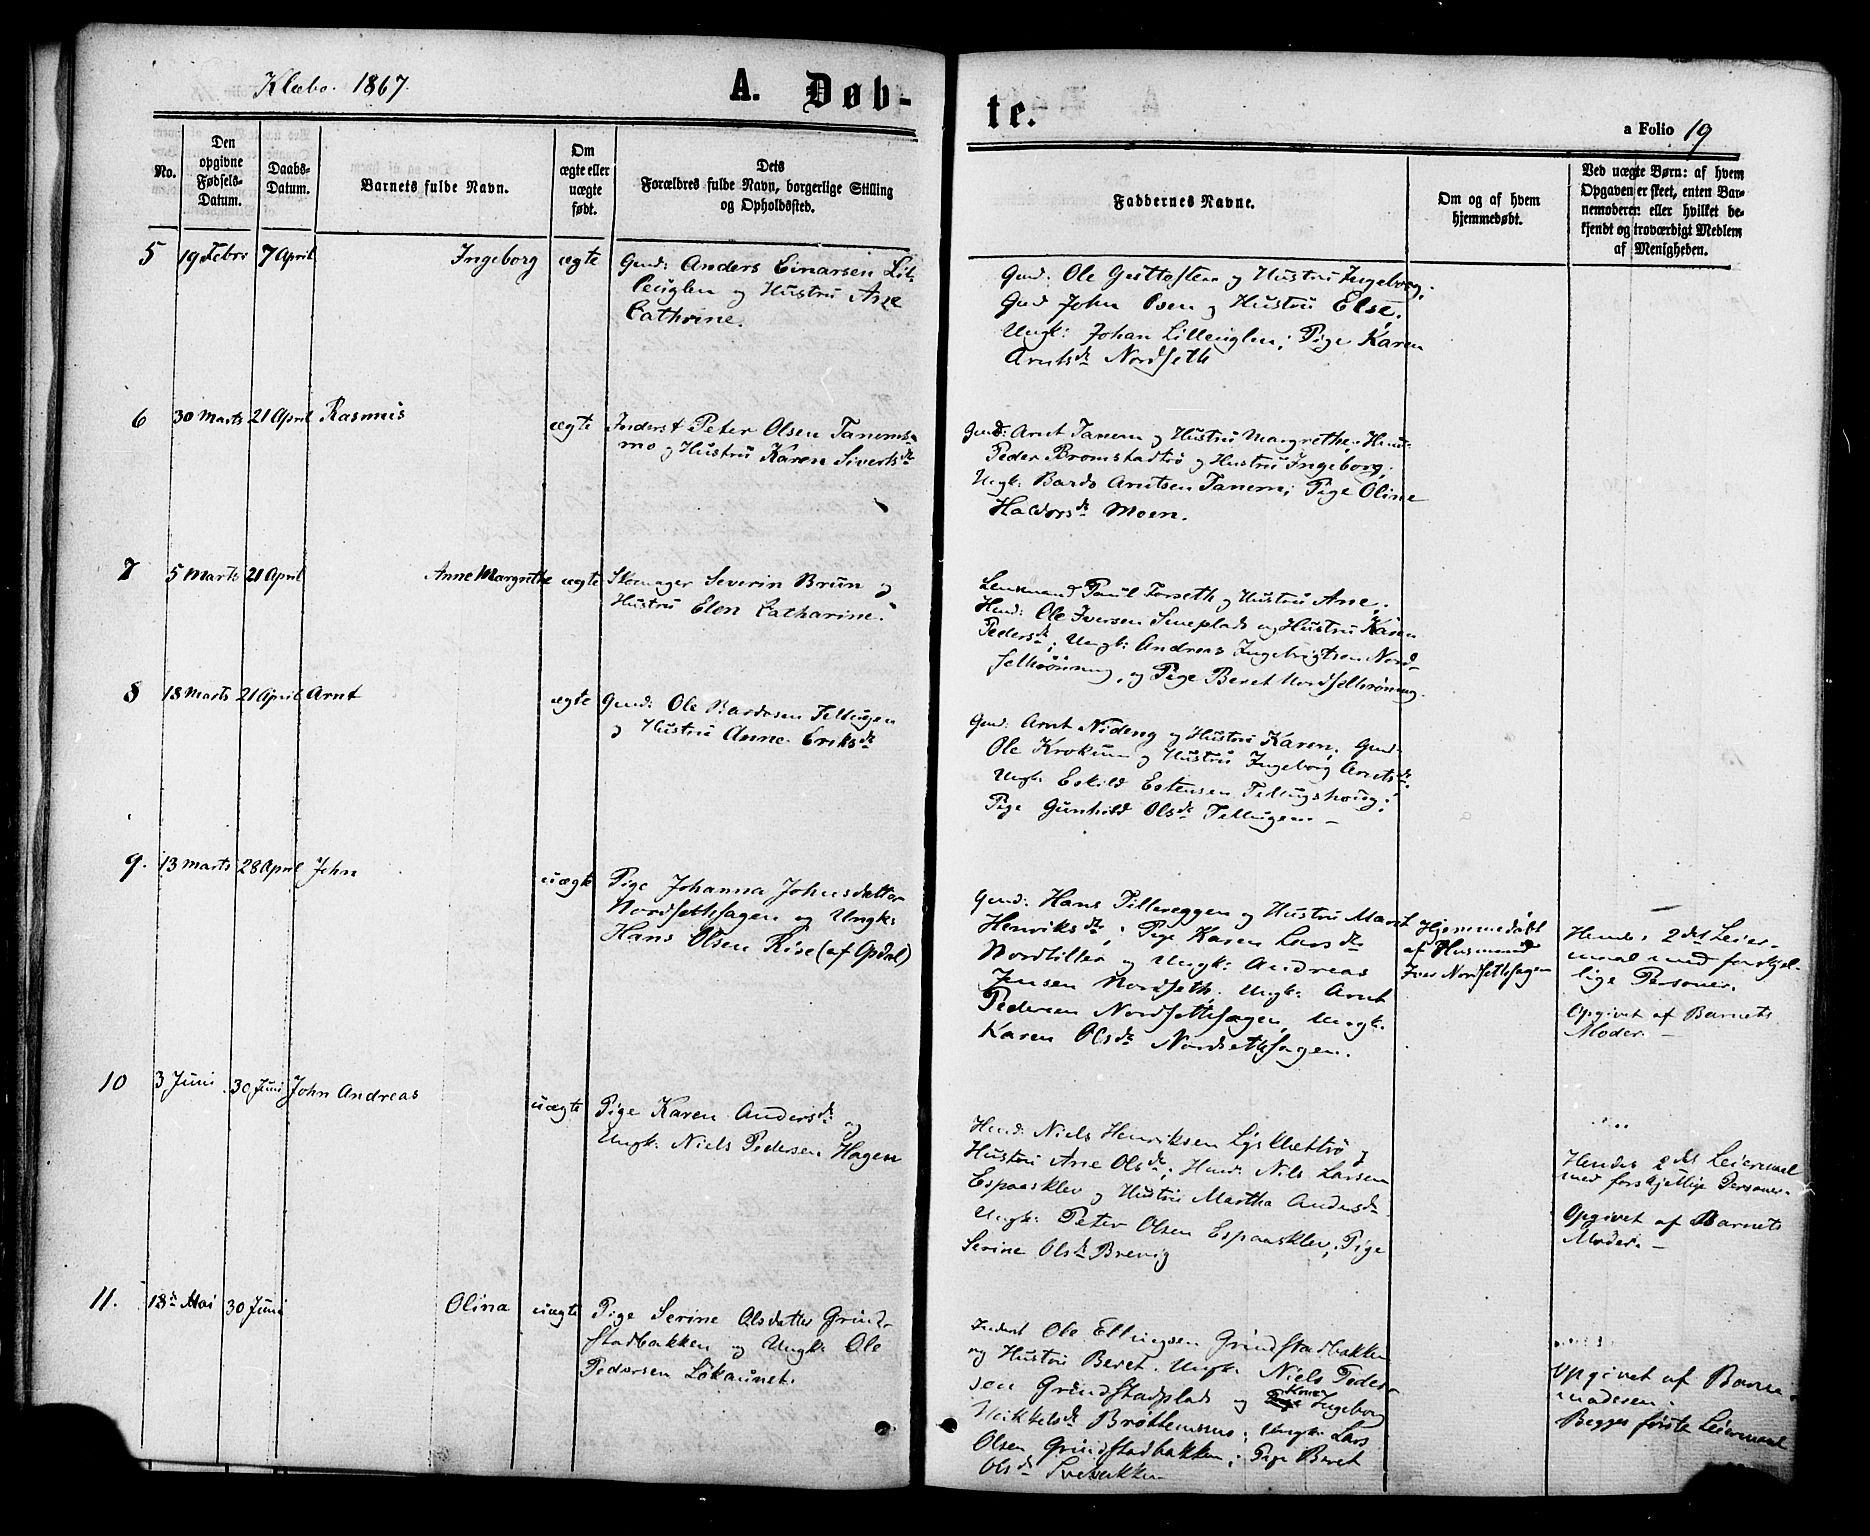 Klæbo. 1867.
A. Døb-
te.
a Folio 19
No.
Den
opgivne
Fødsels-
Datum.
Daabs-
Datum.
Barnets fulde Navn.
Om
ægte eller
uægte
født.
Dets
Forældres fulde Navn, borgerlige Stilling
og Opholdssted.
Faddernes Navne.
Om og af hvem
hjemmedøbt.
Ved uægte Børn: af hvem
Opgaven er skeet, enten Bar-
nemoderen eller hvilket be-
kjendt og troværdigt Medlem
af Menigheden.
5 19 Febr 7 April Ingeborg ægte
Gmd: Anders Einarsen Lil-
leuglen og Hustru Ane
Cathrine.
Gmd: Ole og Hustru Ingeborg;
Gmd John Osen og Hustru Else,
Ungk: Johan Lilleuglen; Pige Karen
Arntsdr Nordseth
6 30 Marts 21 April Rasmus ægte
Inderst Peter Olsen Tanems-
mo og Hustru Karen Sivertsdr
Gmd: Arnt Tanem og Hustru Margrethe, Hmd:
Peder Bromstadtrø og Hustru Ingeborg;
Ungk: Bardo Arntsen Tanem; Pige Oline
Haldorsdr Moen.
7 5 Marts 21 April Anne Margrethe ægte
Skomager Severin Brun og
Hustru Elen Catharine.
Lensmand Paul Forseth og Hustru Ane,
Hmd: Ole Iversen Simeplads og Hustru Karen
Pedersdr; Ungk: Andreas Ingebrigtsen Nord-
sethrønning, og Pige Beret Nordsethrønning.
8 18 Marts 21 April Arnt ægte
Gmd: Ole Bardosen Tellugen
og Hustru Anne Eriksdr
Gmd: Arnt Nideng og Hustru Karen, Gmd:
Ole Krokum og Hustru Ingeborg Arntsdr.
Ungk: Eskild Estensen Tellugshoug;
Pige Gunhild Olsdr Tellugen –
9. 13 Marts 28 April John uægte
Pige Johanna Johnsdatter
Nordsethsagen og Ungk:
Hans Olsen Rise (af Opdal)
Gmd: Hans Tillereggen og Hustru Marit
Henriksdr; Pige Karen Larsdr
Nordtiller og Ungk: Andreas
Jensen Nordseth, Ungk: Arnt
Pedersen Nordsethsagen, Ungk:
Karen Olsdr Nordsethsagen.
Hjemmedøbt
af Husmand
Iver Nordsethsagen
Hendes 2det Leier-
maal med forskjel-
lige Personer.
Opgivet af Barnets
Moder. –
10 3 Juni 30 Juni John Andreas uægte
Pige Karen Andersdr og
Ungk: Niels Pedersen Hagen
Hmd: Niels Henriksen Lysklettrø og
Hustru Ane Olsdr; Hmd: Nils Larsen
Espaasklev og Hustru Martha Andersdr
Ungk: Peter Olsen Espaasklev; Pige
Serine Olsdr Brevig
Hendes 2det Leiermaal
med forskjellige Personer.
Opgivet af Barnets
Moder. –
11. 18de Mai 30 Juni Olina uægte
Pige Serine Olsdatter Grind-
stadbakken og Ungk: Ole
Pedersen Løkaunet.
Inderst Ole Ellingsen Grindstadbakken
og Hustru Beret. Ungk: Niels Peder-
sen Grindstadplads og Kone Ingeborg
Mikkelsdr Brøttemsmo; Ungk: Lars
Olsen Grindstadbakken; Pige Beret
Olsdr Svebakken
Opgivet af Barne-
moderen.
Begges første Leiermaal